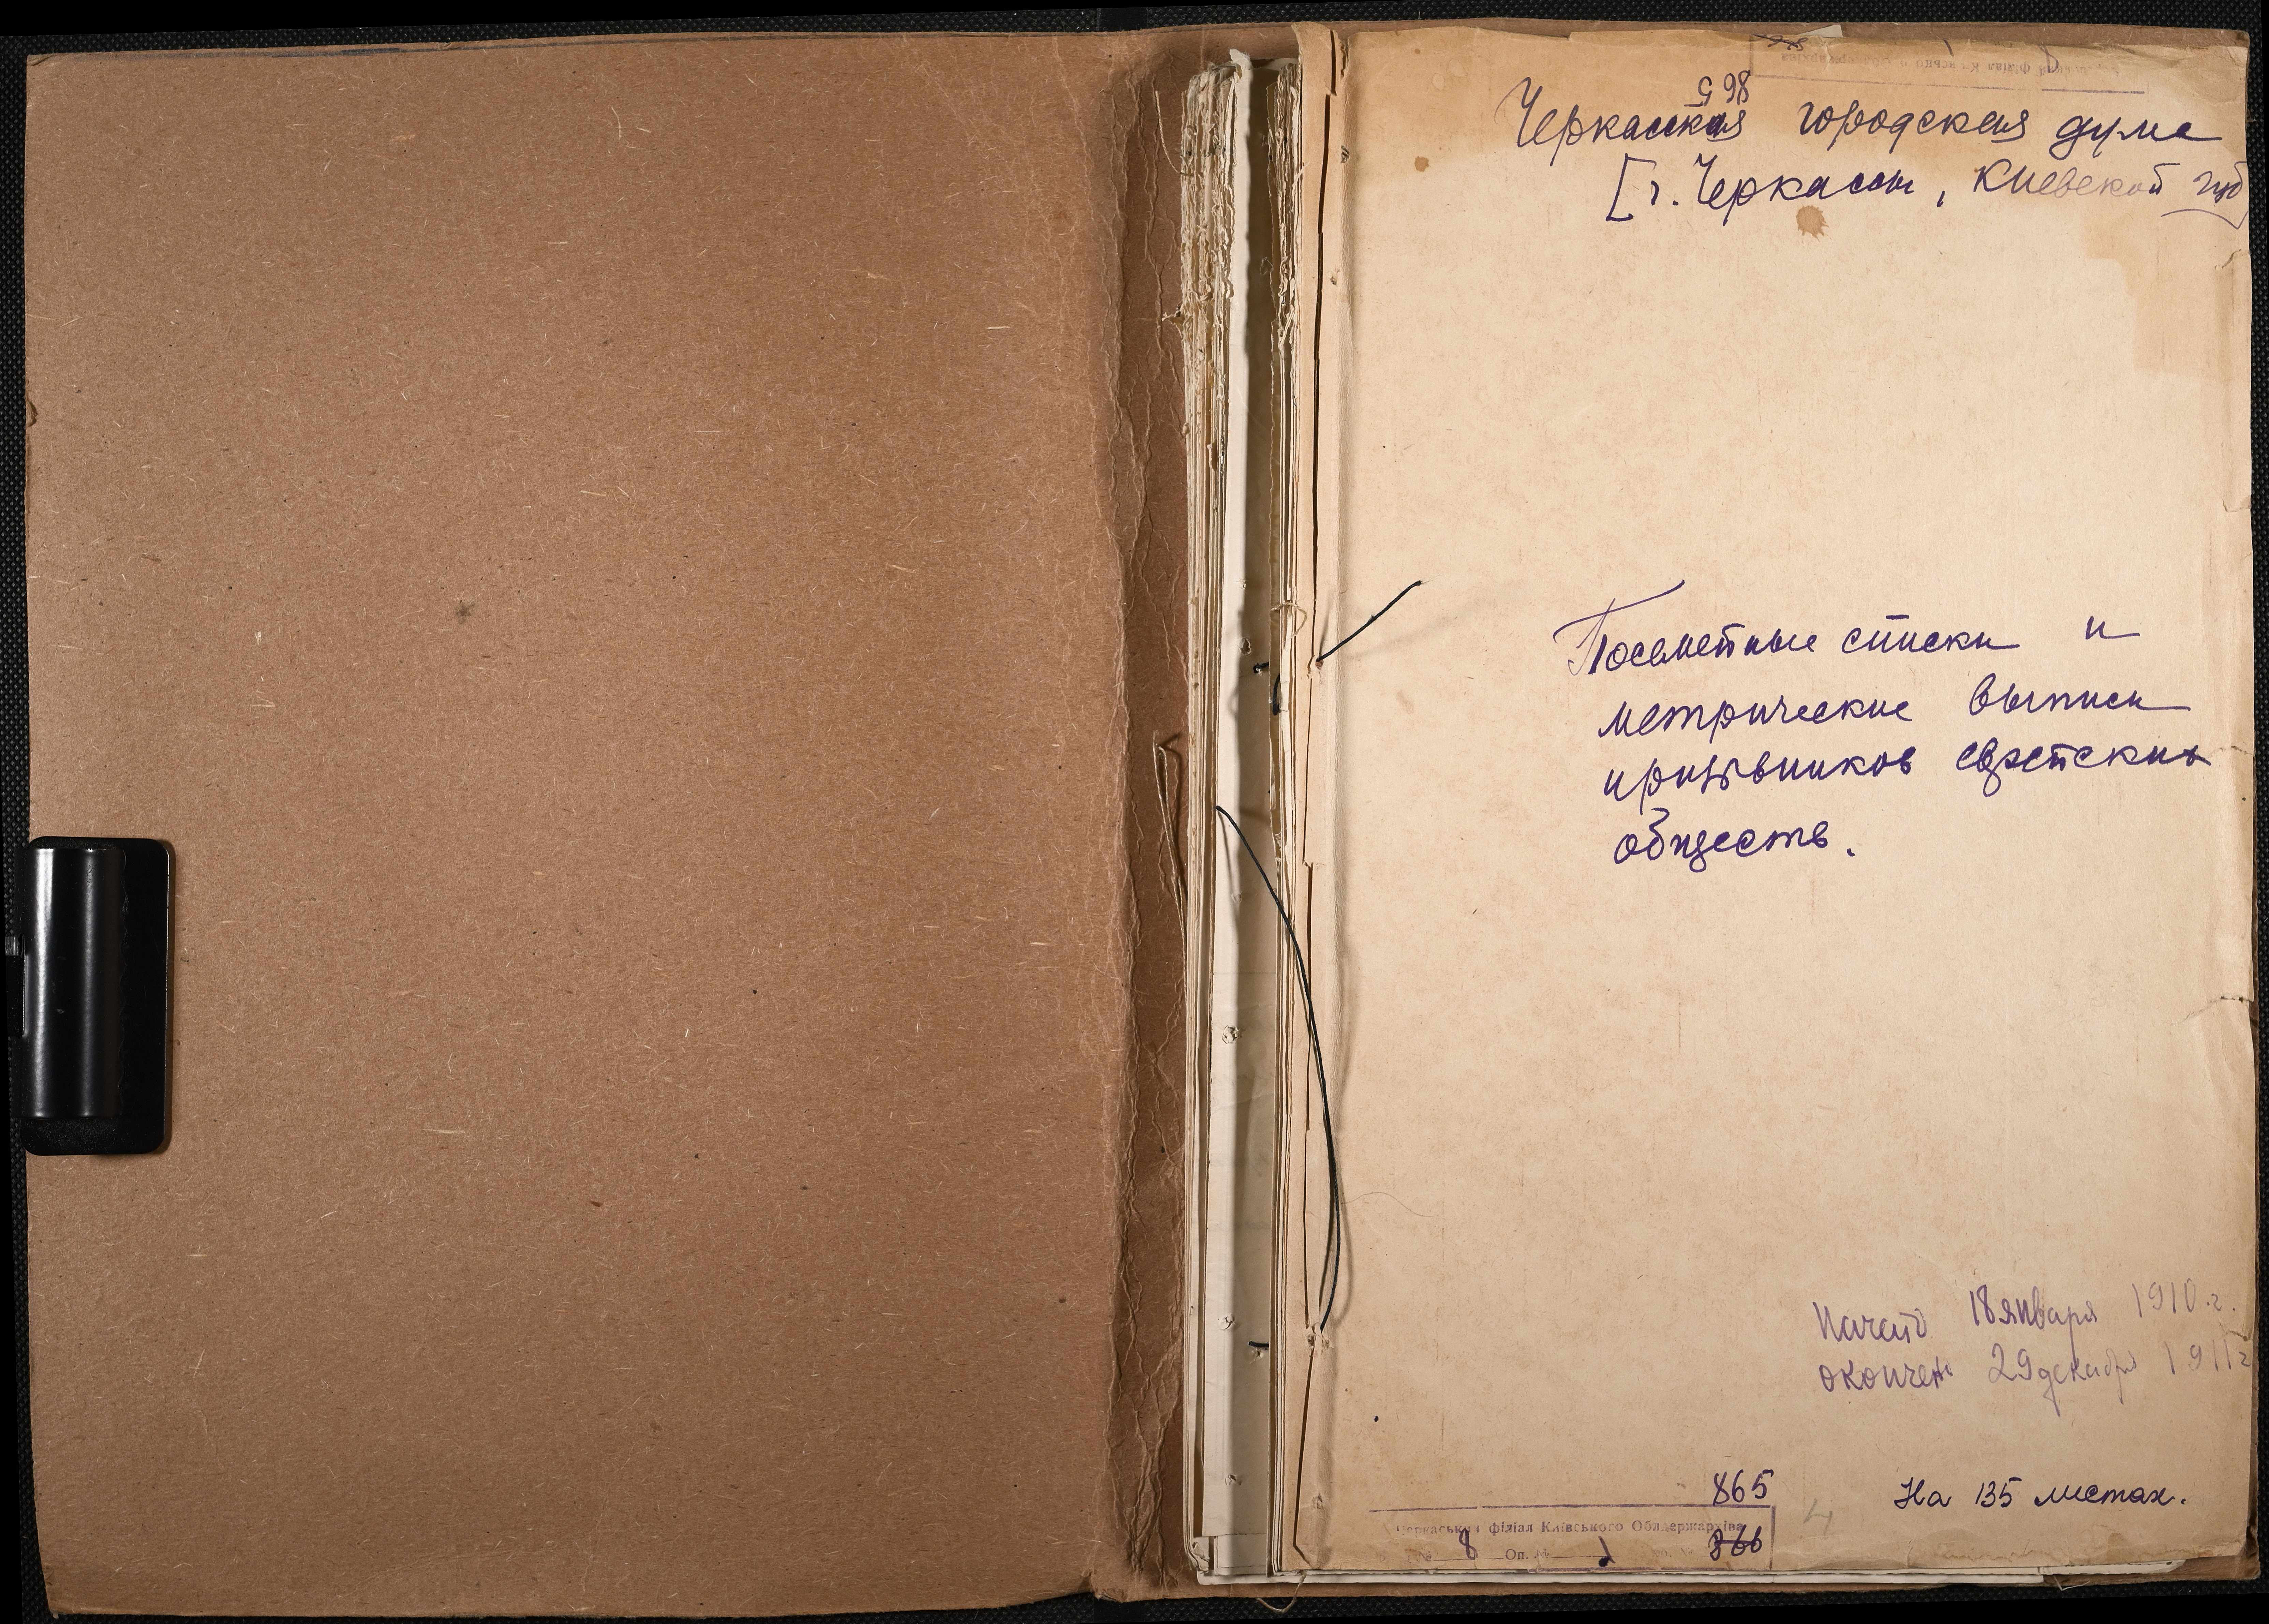 865
Черкасская городская дума
[г. Черкассы, Киевской губ]
Посемейные списки и
метрические выписи
призывников еврейских
обществ.
Начато 18 января 1910 г.
окончен 29 декабря 1911 г
865
На 135 листах.
Черкаський філіал Київського Облдержархіва
8 Оп. № 1 866